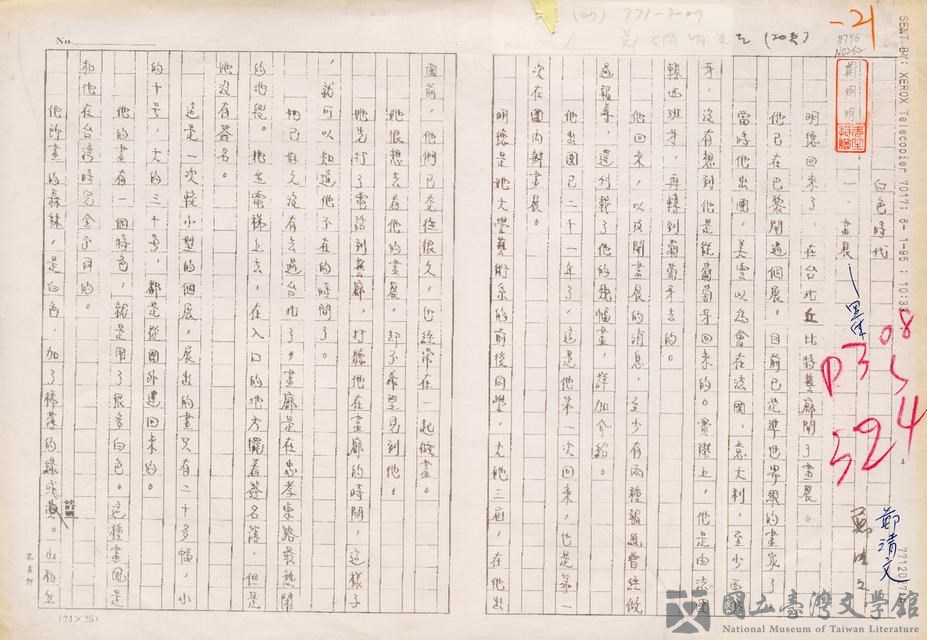 (07) 771-2009
鄭烱明先生 (20頁)
-21
8796
N0262
No.
SENT BY: XEROX Telecopier 7017; 8- 1-95 ; 10:3
77120
鄭烱明
白色時代
鄭清文
鄭清文
一、畫展
黑体
08
P3 5
524
明德回來了，在台北丘比特藝廊開了畫展。
他已在巴黎開過個展，目前已是準世界級的畫家了。
當時他出國，美雲以為會在法國、意大利，至少西班
牙，沒有想到他是從葡萄牙回來的。實際上，他是由法國
轉西班牙，再轉到葡萄牙去的。
他回來，以及開畫展的消息，至少有兩種報紙曾經做
過報導，還刊載了他的幾幅畫，詳加介紹。
他出國已二十一年了，這是他第一次回來，也是第一
次在國內辦畫展。
明德是她大學藝術系的前後同學，大她三屆，在他出
國前，他們已交往很久，也經常在一起做畫。
她很想去看他的畫展，却不希望見到他。
她先打了電話到藝廊，打聽他在畫廊的時間，這樣子
，就可以知道他不在的時間了。
她已好久沒有去過台北了。畫廊是在忠孝東路最熱鬧
的地段。她坐電梯上去，在入口的地方擺着簽名簿，但是
她沒有簽名。
這是一次較小型的個展，展出的畫只有二十多幅，小
的十號，大的三十號，都是從國外運回來的。
他的畫有一個特色，就是用了很多白色。這種畫風是
和他在台灣時完全不同的。
他所畫的森林，是白色，加了樺葉的綠或黃。山和丘
(24×25)
國立臺灣文學館
National Museum of Taiwan Literature